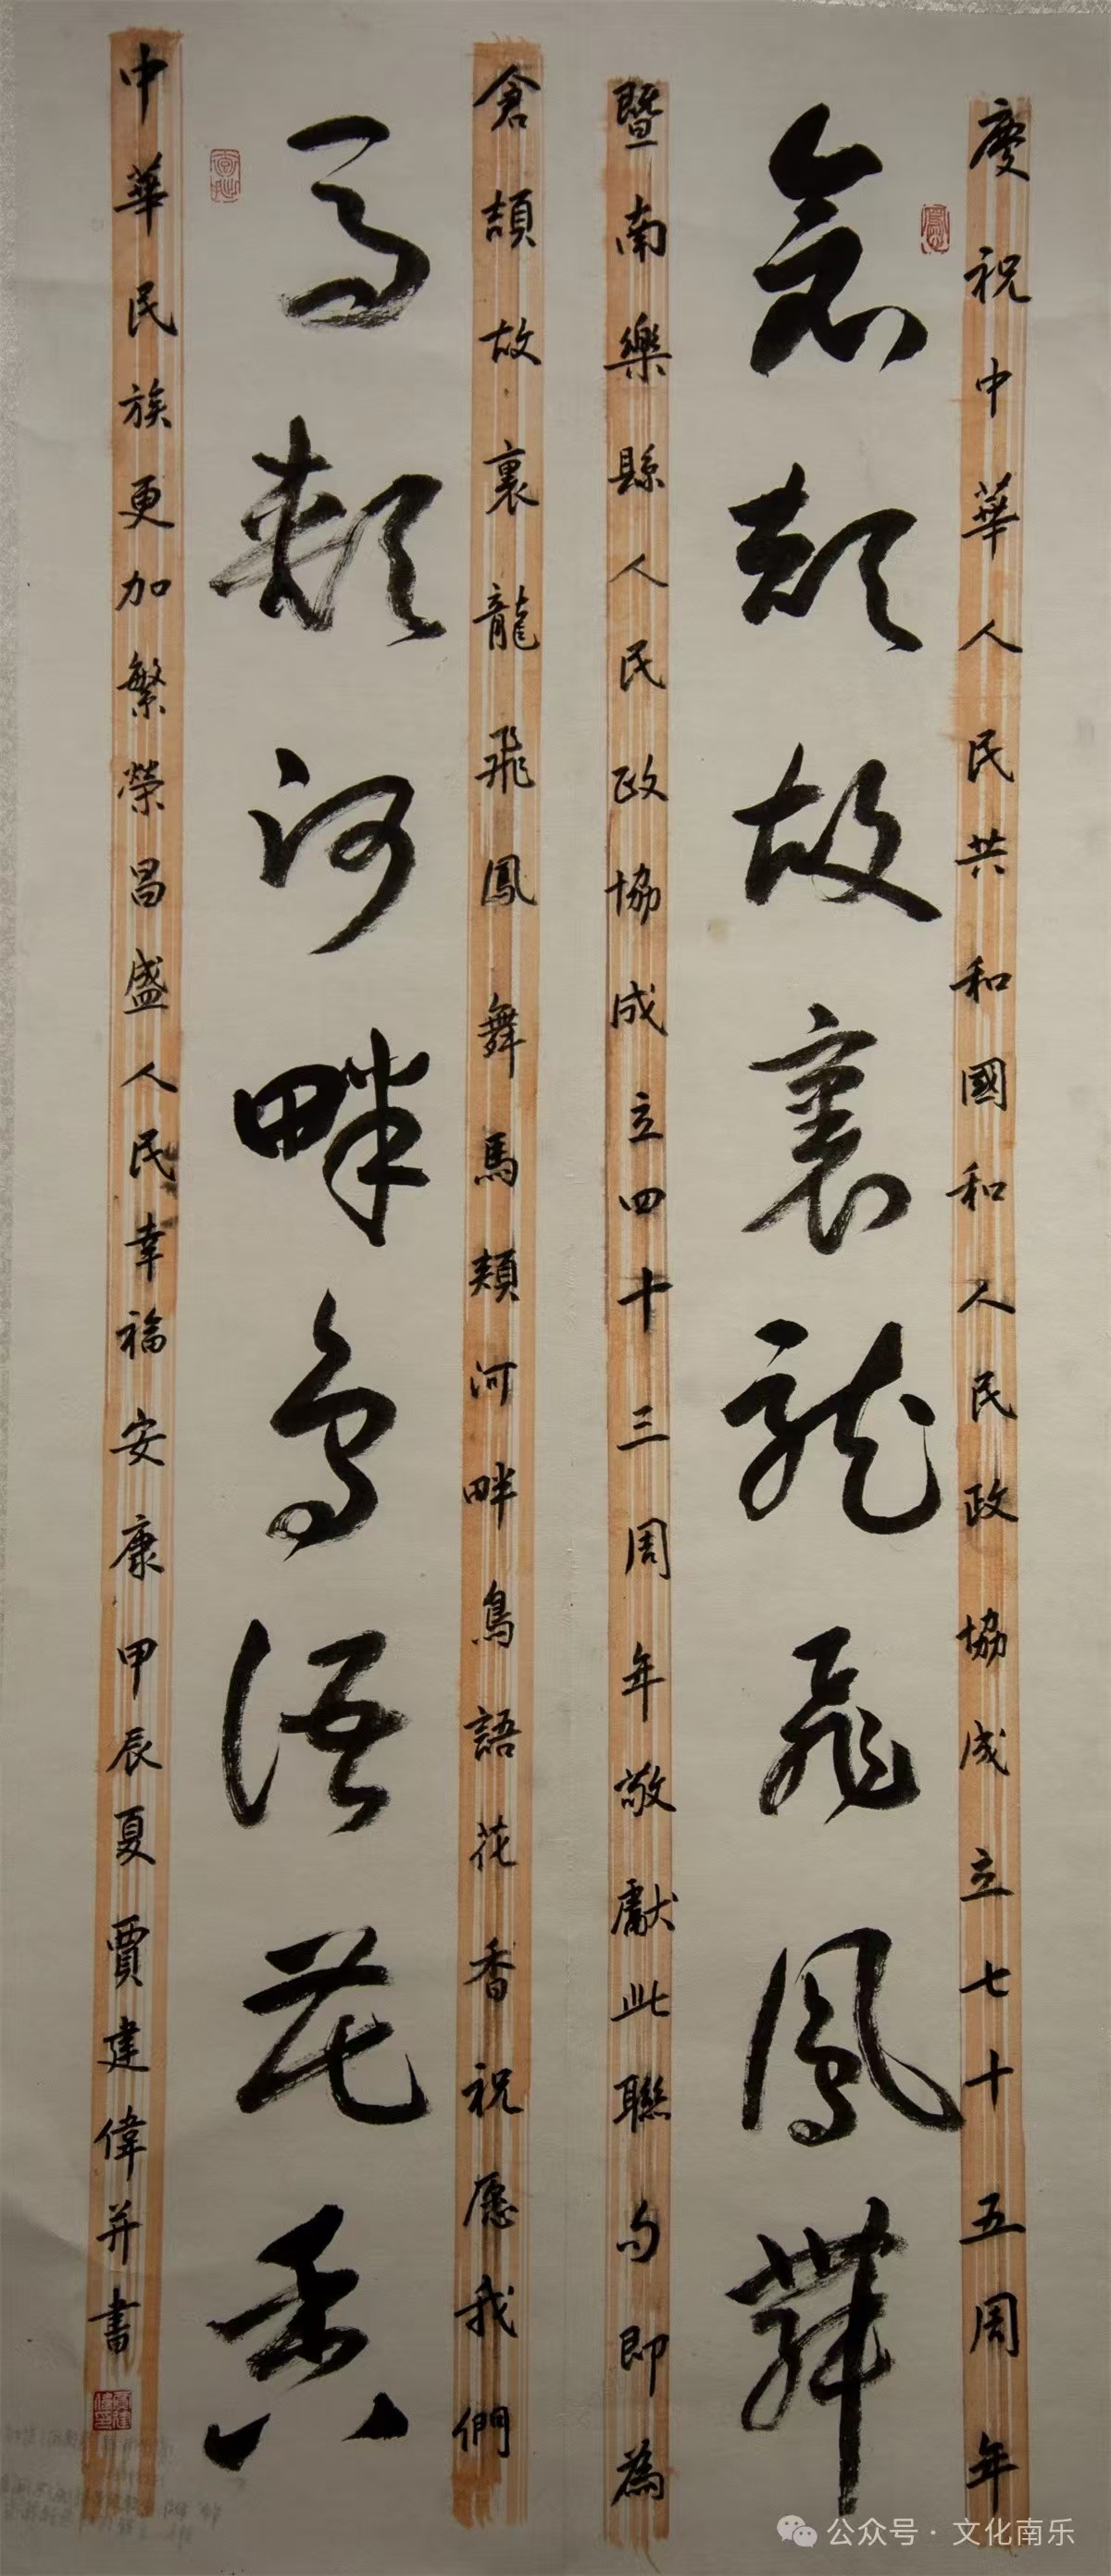 慶祝中華人民共和國和人民政協成立七十五周年
倉頡故裏龍飛鳳舞
暨南樂縣人民政協成立四十三周年敬獻此聯句即為
倉頡故裏龍飛鳳舞馬頰河畔鳥語花香祝愿我們
馬頰河畔鳥語花香
中華民族更加繁榮昌盛人民幸福安康甲辰夏賈建偉并書
公众号·文化南乐